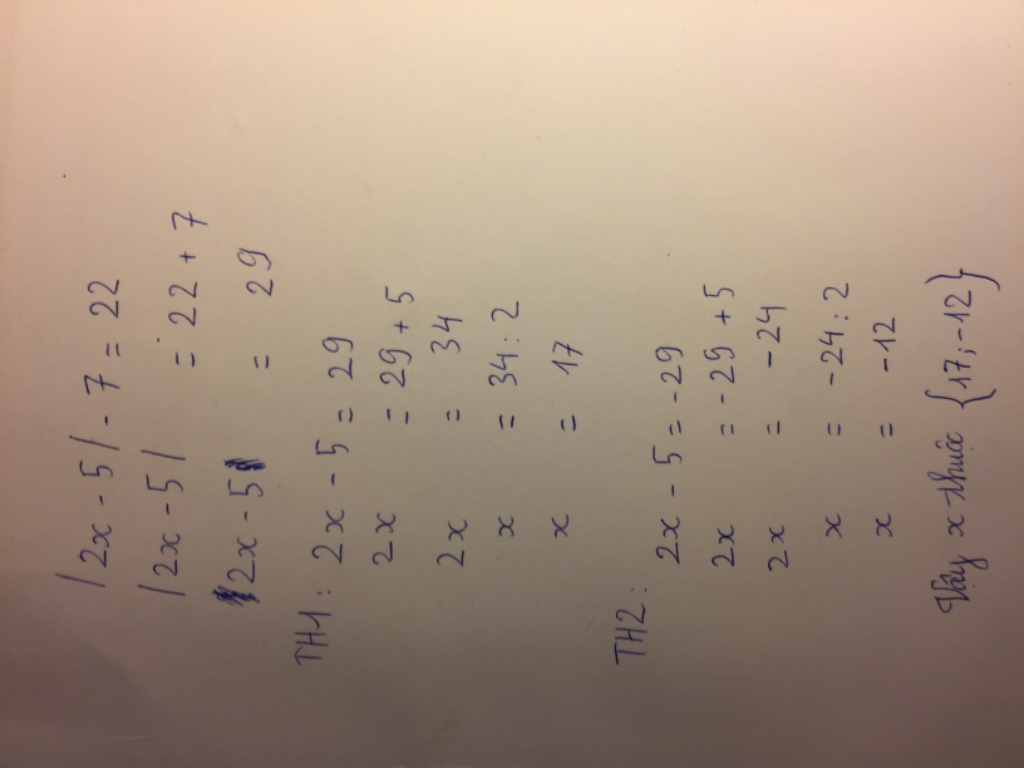 |2x - 5| - 7 = 22
|2x - 5| = 22 + 7
2x - 5 = 29
TH1: 2x - 5 = 29
2x = 29 + 5
2x = 34
x = 34 : 2
x = 17
TH2: 2x - 5 = -29
2x = -29 + 5
2x = -24
x = -24 : 2
x = -12
Vậy x thuộc {17; -12}